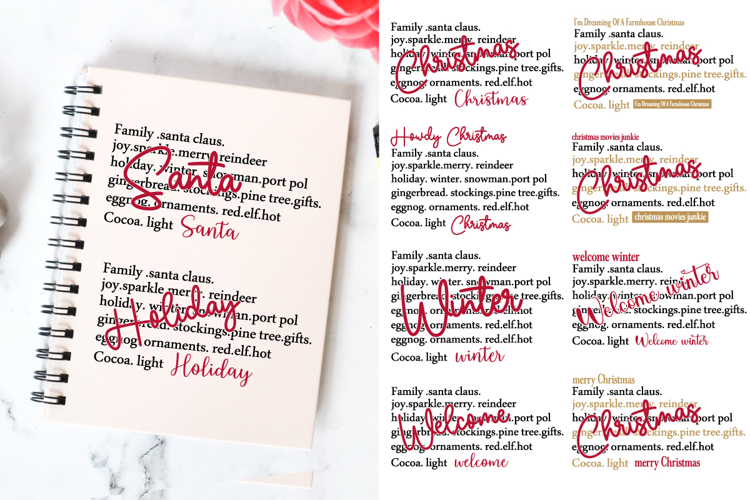 Family .santa claus.
joy.sparkle.merry. reindeer
holiday. winter. snowman.port pol
gingerbread. stockings.pine tree.gifts.
eggnog. ornaments. red.elf.hot
Cocoa. light Santa
Santa
Family .santa claus.
joy.sparkle.merry. reindeer
holiday. winter. snowman.port pol
gingerbread. stockings.pine tree.gifts.
eggnog. ornaments. red.elf.hot
Cocoa. light Holiday
Holiday
Family .santa claus.
joy.sparkle.merry. reindeer
holiday. winter. snowman.port pol
gingerbread. stockings.pine tree.gifts.
eggnog. ornaments. red.elf.hot
Cocoa. light Christmas
Christmas
Howdy Christmas
Family .santa claus.
joy.sparkle.merry. reindeer
holiday. winter. snowman.port pol
gingerbread. stockings.pine tree.gifts.
eggnog. ornaments. red.elf.hot
Cocoa. light Christmas
Family .santa claus.
joy.sparkle.merry. reindeer
holiday. winter. snowman.port pol
gingerbread. stockings.pine tree.gifts.
eggnog. ornaments. red.elf.hot
Cocoa. light winter
Winter
Family .santa claus.
joy.sparkle.merry. reindeer
holiday. winter. snowman.port pol
gingerbread. stockings.pine tree.gifts.
eggnog. ornaments. red.elf.hot
Cocoa. light welcome
Welcome
I'm Dreaming Of A Farmhouse Christmas
Family .santa claus.
joy.sparkle.merry. reindeer
holiday. winter. snowman.port pol
gingerbread. stockings.pine tree.gifts.
eggnog. ornaments. red.elf.hot
Cocoa. light I'm Dreaming Of A Farmhouse Christmas
Christmas
christmas movies junkie
Family .santa claus.
joy.sparkle.merry. reindeer
holiday. winter. snowman.port pol
gingerbread. stockings.pine tree.gifts.
eggnog. ornaments. red.elf.hot
Cocoa. light christmas movies junkie
Christmas
welcome winter
Family .santa claus.
joy.sparkle.merry. reindeer
holiday. winter. snowman.port pol
gingerbread. stockings.pine tree.gifts.
eggnog. ornaments. red.elf.hot
Cocoa. light Welcome winter
Welcome winter
merry Christmas
Family .santa claus.
joy.sparkle.merry. reindeer
holiday. winter. snowman.port pol
gingerbread. stockings.pine tree.gifts.
eggnog. ornaments. red.elf.hot
Cocoa. light merry Christmas
Christmas